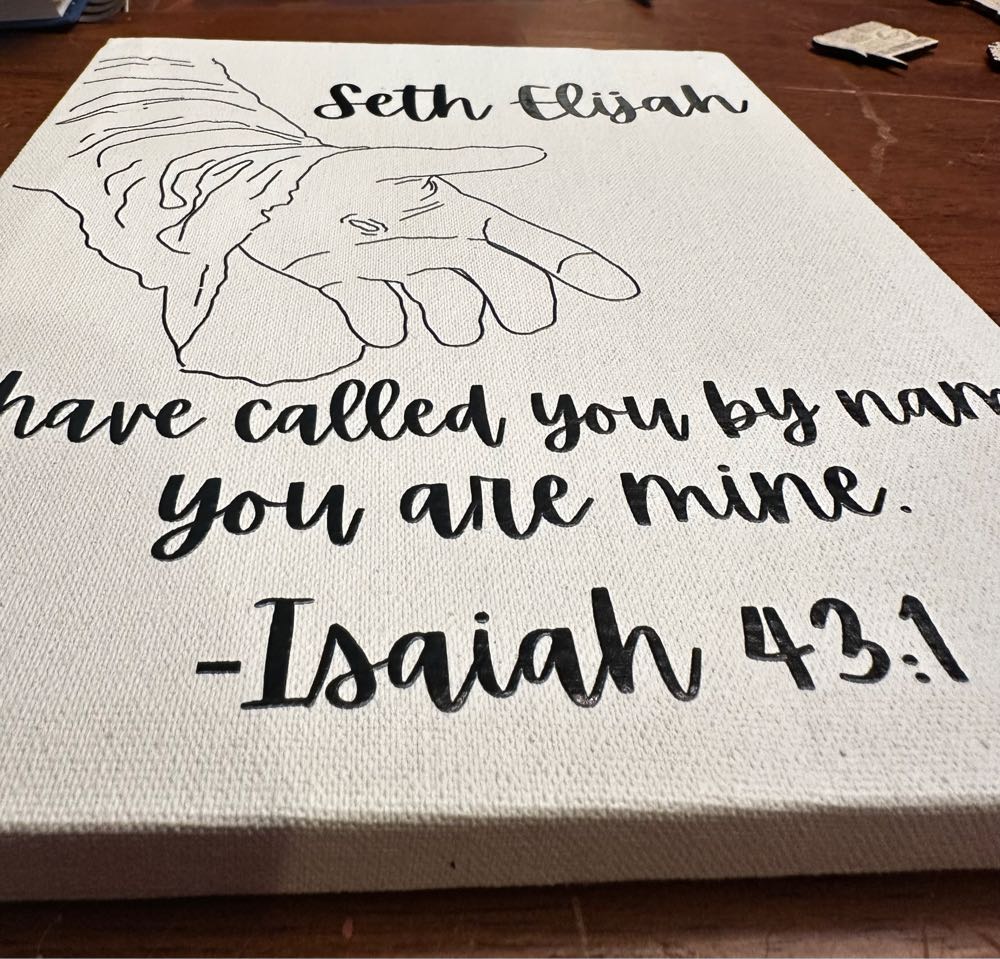 Seth Elijah
have called you by nam
you are mine.
-Isaiah 43:1